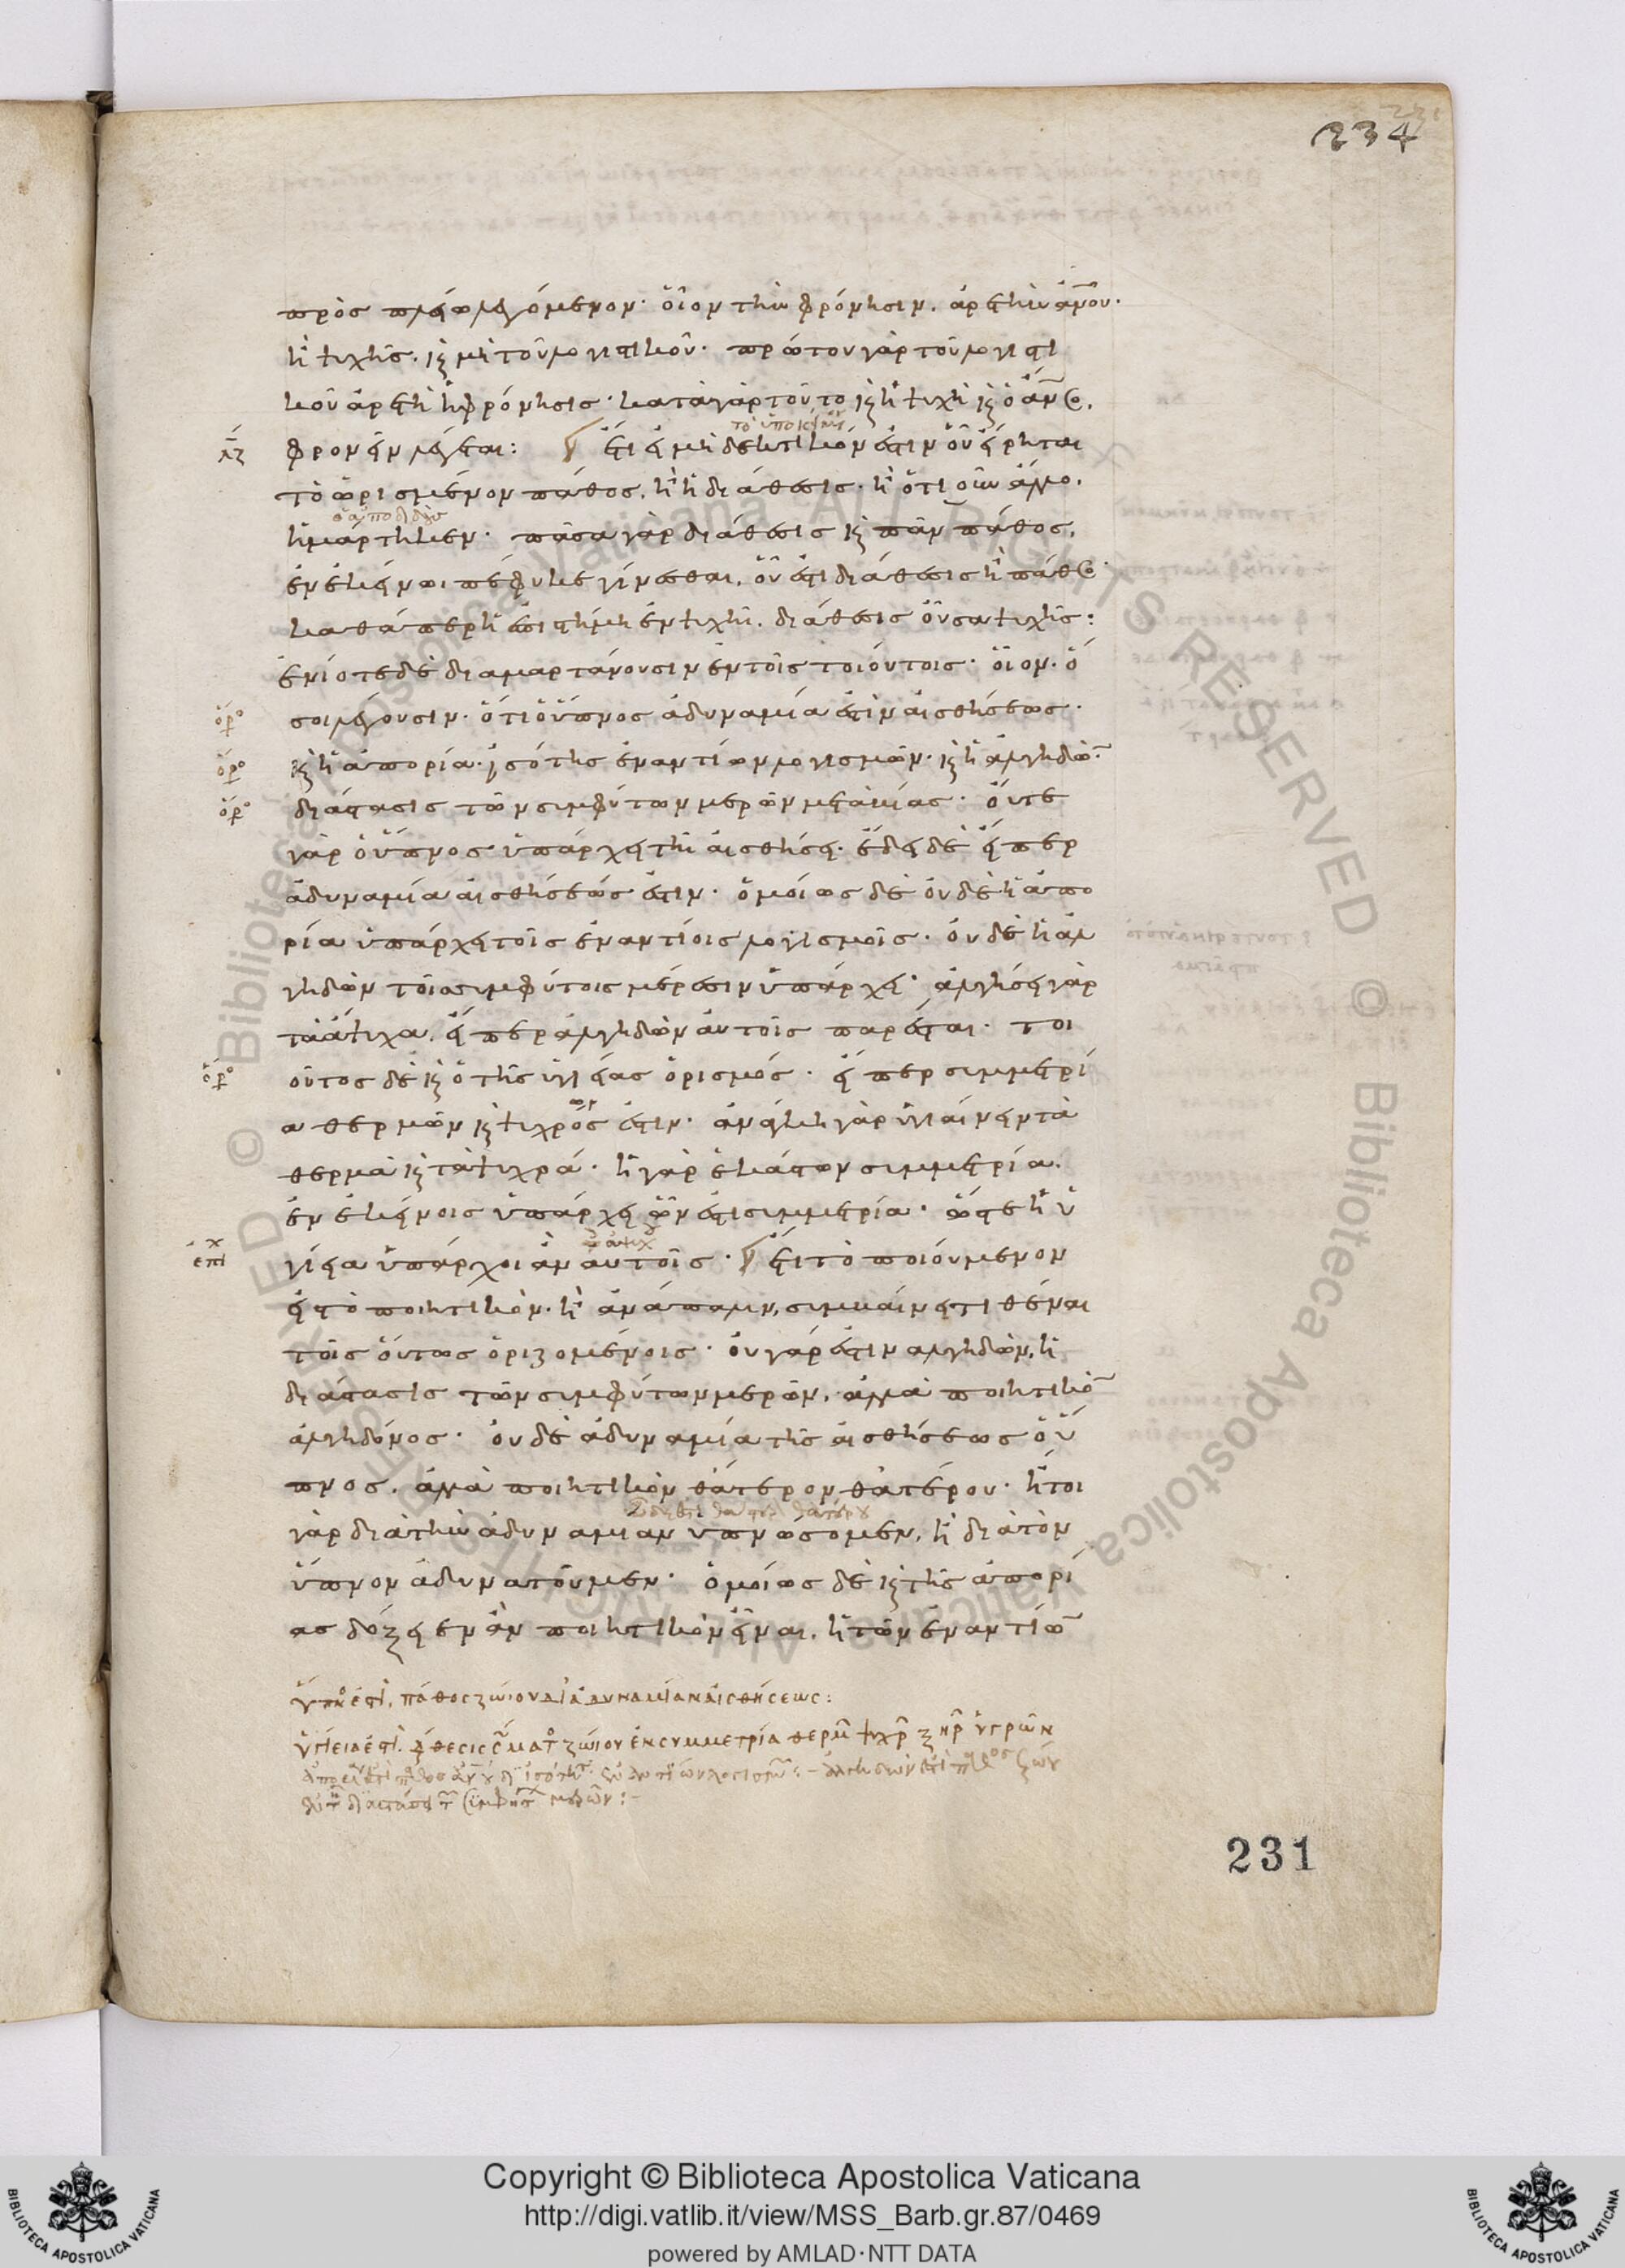 234
πρὸς πλείω λεγόμενον· οἷον τὴν φρόνησιν, ἀρετὴν ἀν̅ου·
ἢ ψυχῆς, κ̀ μὴ τοῦ λογιστικοῦ· πρώτου γὰρ τοῦ λογιστι
κοῦ ἀρετὴ ἡ φρόνησις· κατὰ γὰρ τοῦτο κ̀ ἡ ψυχὴ κ̀ ὁ ἄν̅ος,
φρονεῖν λέγεται: ἔτι εἰ μὴ δεκτικόν ἐστιν οὗ εἴρηται
τὸ ὡρισμένον πάθος, ἢ ἡ διάθεσις· ἢ ὅτι οὖν ἄλλο,
ἡμάρτηκεν· πᾶσα γὰρ διάθεσις κ̀ πᾶν πάθος,
ἐν ἐκείνωι πέφυκε γίνεσθαι, οὗ ἐστι διάθεσις ἢ πάθος·
καθάπερ ἡ ἐπιστήμη ἐν ψυχῆι, διάθεσις οὖσα ψυχῆς:
ἐνίοτε δὲ διαμαρτάνουσιν ἐν τοῖς τοιούτοις· οἷον· ὅ
σοι λέγουσιν· ὅτι ὁ ὕπνος ἀδυναμία ἐστὶν αἰσθήσεως·
κ̀ ἡ ἀπορία· ἰσότης ἐναντίων λογισμῶν· κ̀ ἡ ἀλγηδὼ̅·
διάστασις τῶν συμφύτων μερῶν μετὰ βίας· οὔτε
γὰρ ὁ ὕπνος ὑπάρχει τῆι αἰσθήσει· ἔδει δὲ εἴπερ
ἀδυναμία αἰσθήσεώς ἐστιν· ὁμοίως δὲ οὐδὲ ἡ ἀπο
ρία ὑπάρχει τοῖς ἐναντίοις λογισμοῖς· οὐδὲ ἡ ἀλ
γηδὼν τοῖς συμφύτοις μέρεσιν ὑπάρχει· ἀλγήσει γὰρ
τὰ ἄψυχα, εἴπερ ἀλγηδὼν αὐτοῖς παρέσται· τοι
οῦτος δὲ κ̀ ὁ τῆς ὑγιείας ὁρισμός· εἴπερ συμμετρί
α θερμῶν κ̀ ψυχρός ἐστιν· ἀνάγκη γὰρ ὑγιαίνειν τὰ
θερμὰ κ̀ τὰ ψυχρά· ἡ γὰρ ἑκάστων συμμετρία,
ἐν ἐκείνοις ὑπάρχει ὧν ἐστι συμμετρία· ὥστε ἡ ὑ
γίεια ὑπάρχοι ἂν αὐτοῖς· ἔτι τὸ ποιούμενον
εἰς τὸ ποιητικόν· ἢ ἀνάπαλιν, συμβαίνει τιθέναι
τοῖς οὕτως ὁριζομένοις· οὐ γάρ ἐστιν ἀλγηδὼν, ἡ
διάστασις τῶν συμφύτων μερῶν, ἀλλὰ ποιητικὸ̅
ἀλγηδόνος· οὐδὲ ἀδυναμία τῆς αἰσθήσεως ὁ ὕ
πνος, ἀλλὰ ποιητικὸν θάτερον θατέρου· ἤτοι
γὰρ διὰ τὴν ἀδυναμίαν ὑπνώσομεν, ἢ διὰ τὸν
ὕπνον ἀδυνατοῦμεν· ὁμοίως δὲ κ̀ τῆς ἀπορί
ας δόξειεν ἂν ποιητικὸν εἶναι, ἡ τῶν ἐναντίω̅
ὕπνος ἐστὶ, πάθος ζώιου δι' ἀδυναμίαν αἰσθήσεως:
ὑγίεια ἐστὶ, διάθεσις σώματος ζώιου ἐκ συμμετρία θερμ̅ ψυχρ̅ ξηρ̅ ὑγρῶν
231
Copyright © Biblioteca Apostolica Vaticana
http://digi.vatlib.it/view/MSS_Barb.gr.87/0469
powered by AMLAD·NTT DATA